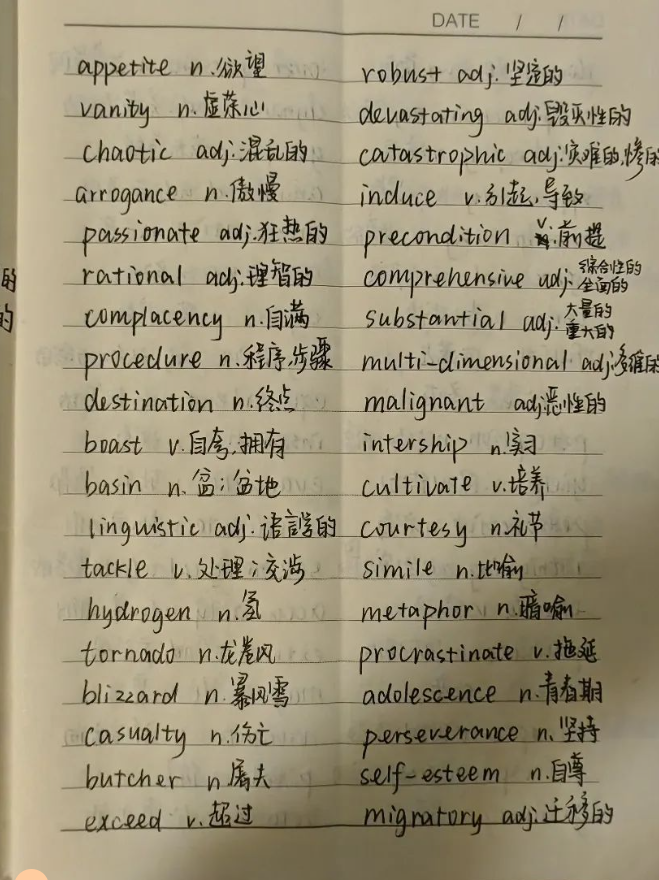 DATE / /
appetite n.欲望
vanity n.虚荣心
chaotic adj.混乱的
arrogance n.傲慢
passionate adj.狂热的
rational adj.理智的
complacency n.自满
procedure n.程序,步骤
destination n.终点
boast v.自夸,拥有
basin n.盆;盆地
linguistic adj.语言学的
tackle v.处理;交涉
hydrogen n.氢
tornado n.龙卷风
blizzard n.暴风雪
casualty n.伤亡
butcher n.屠夫
exceed v.超过
robust adj.坚定的
devastating adj.毁灭性的
catastrophic adj.灾难的,惨的
induce v.引起,导致
precondition v.前提
comprehensive adj.综合性的
全面的
substantial adj.大量的
重大的
multi-dimensional adj.多维的
malignant adj.恶性的
intership n.实习
cultivate v.培养
courtesy n.礼节
simile n.比喻
metaphor n.暗喻
procrastinate v.拖延
adolescence n.青春期
perseverance n.坚持
self-esteem n.自尊
migratory adj.迁移的
的
的